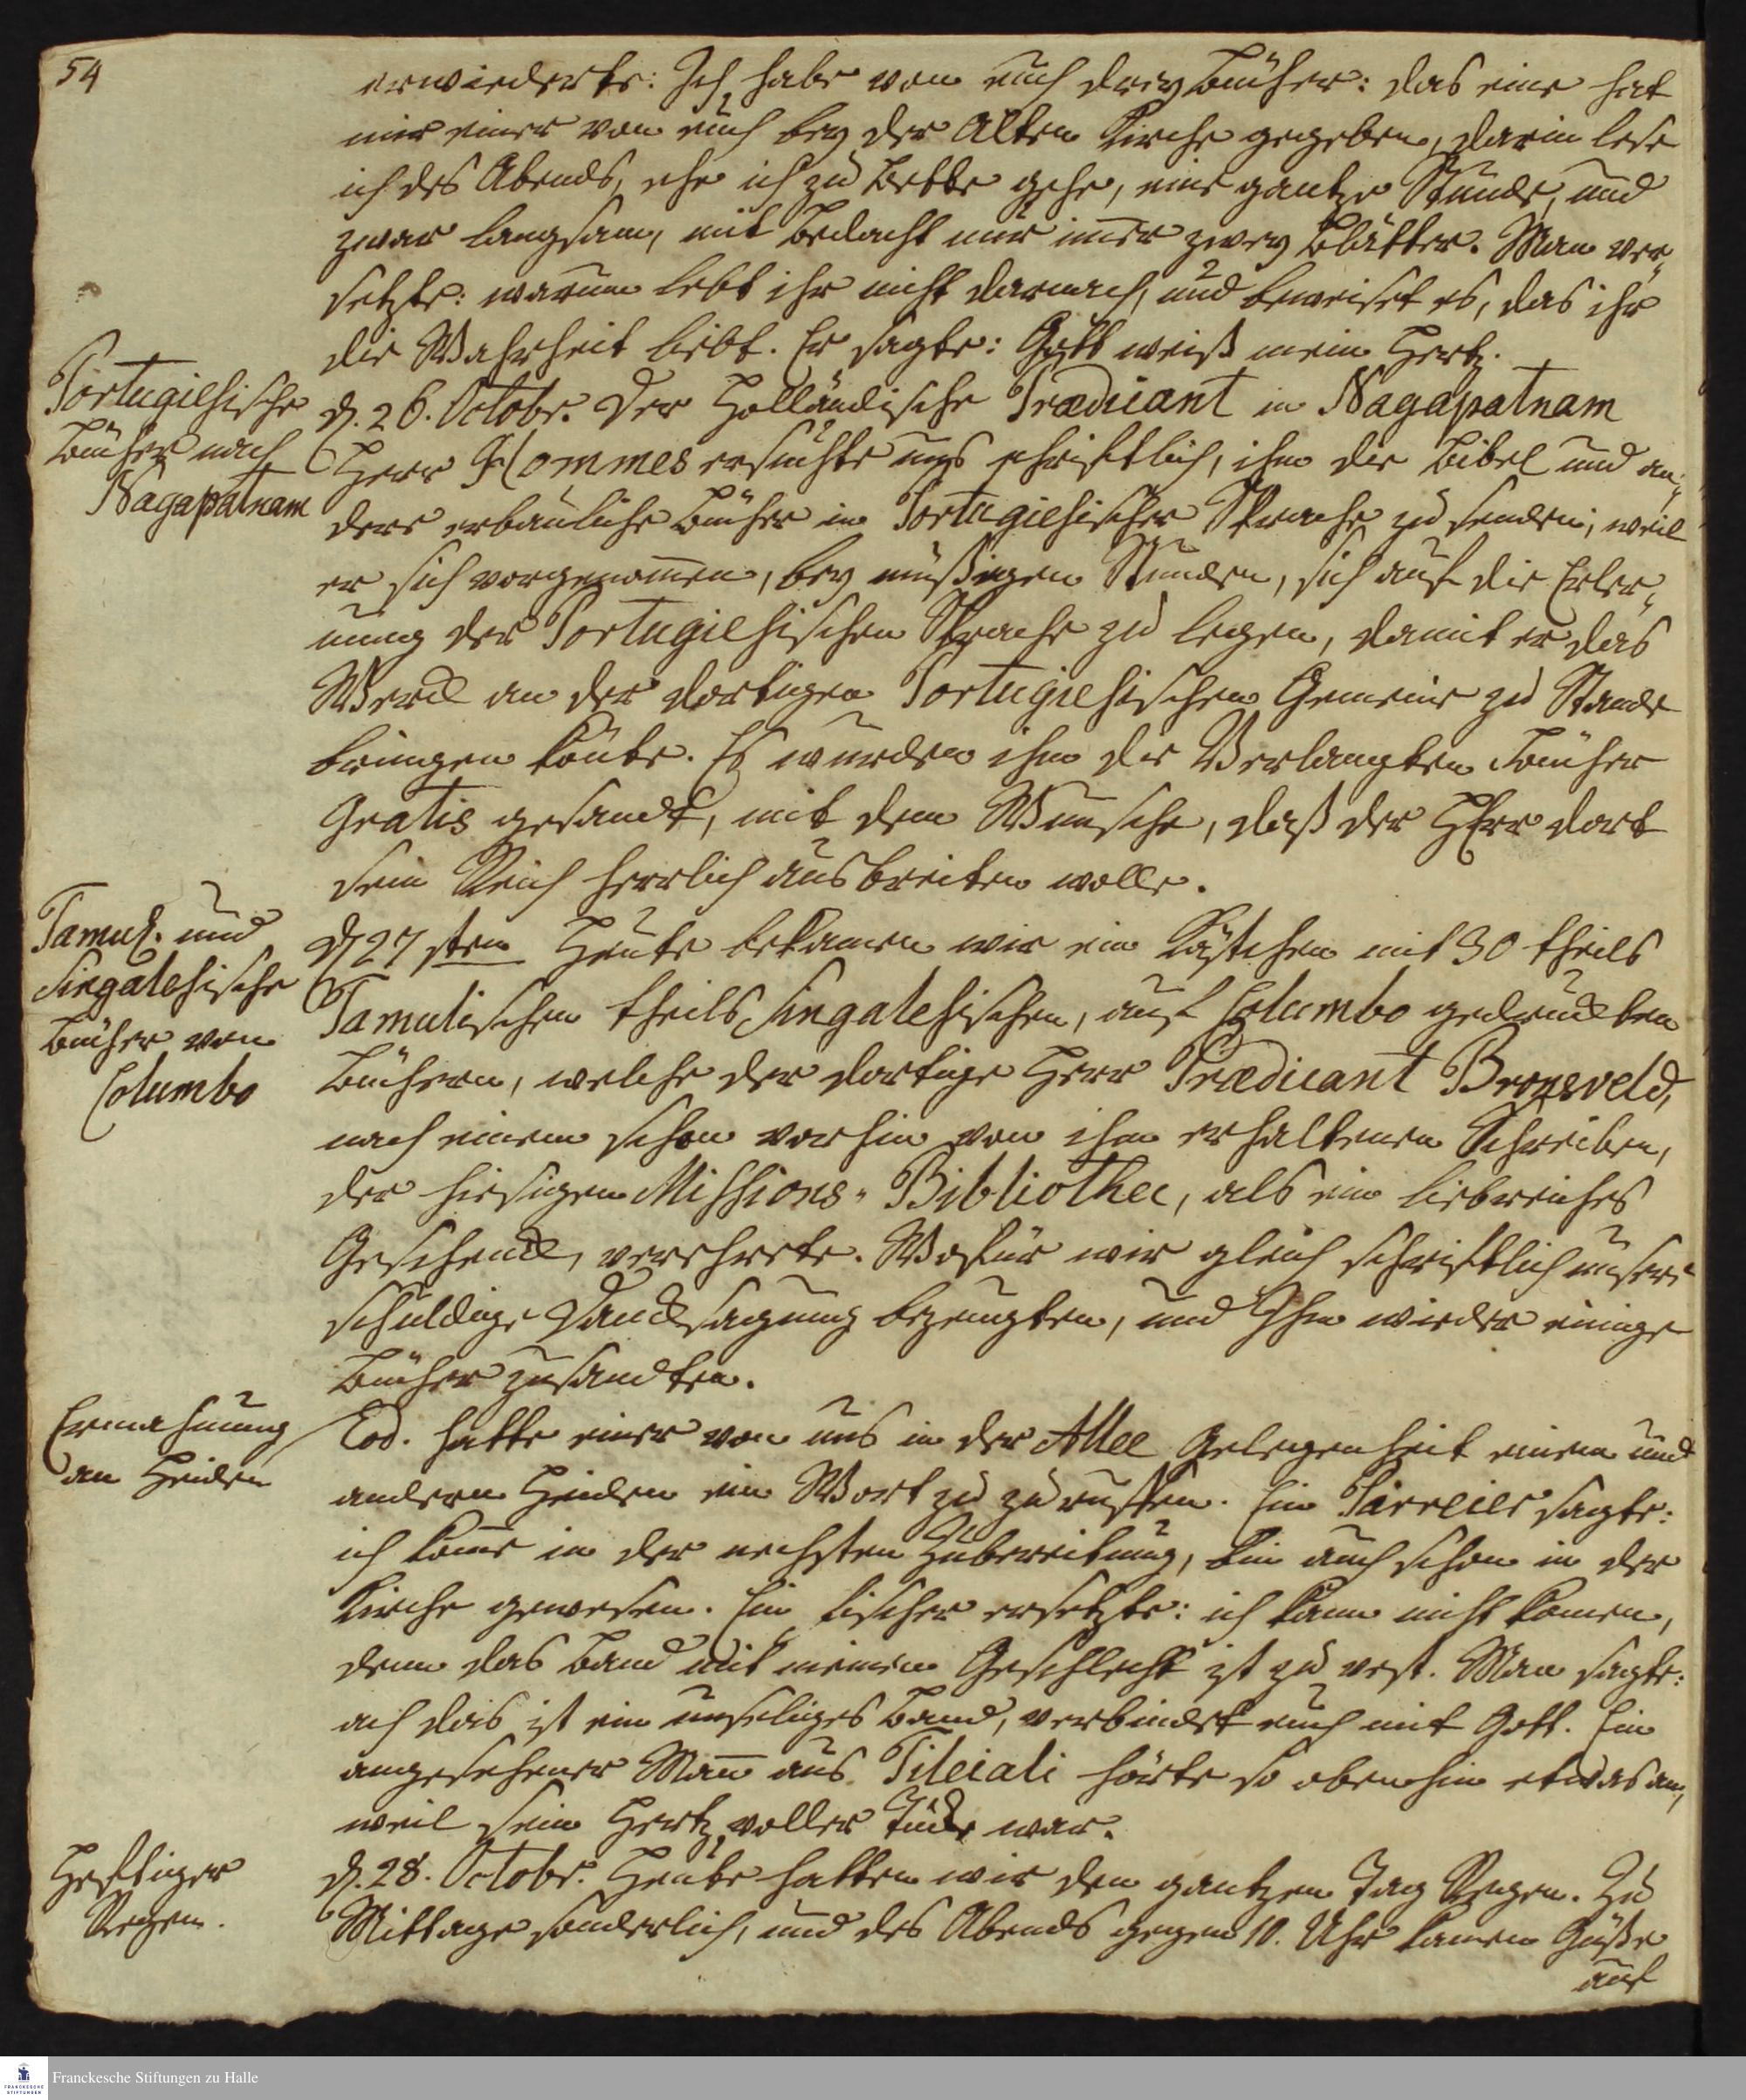 54
erwiederte: Ich habe von euch drey Bücher: das eine hat
mir einer von euch bey der Alten Kirche gegeben, darin lese
ich des Abends, ehe ich zu Bette gehe, eine gantze Stunde, und
zwar langsam, mit Bedacht nur im̄er zwey Blätter. Man ver„
setzte: warum lebt ihr nicht darnach, und beweiset es, das ihr
die Wahrheit liebt. Er sagte: Gott weiß mein Hertz.
Portugiesische
Bücher nach
Nagapatnam
d. 26. Octobr. Der Holländische Prædicant in Nagapatnam
Herr Klommes ersuchte uns schriftlich, ihm die Bibel und an„
dere erbauliche Bücher in Portugiesischer Sprache zu senden; weil
er sich vorgenom̄en, bey müßigen Stunden, sich auf die Erler„
nung der Portugiesischen Sprache zu legen, damit er das
Werck an der dortigen Portugiesischen Gemeine zu Stande
bringen könte. Es wurden ihm die Verlangten Bücher
Gratis gesandt, mit dem Wunsche, daß der HErr dort
sein Reich herrlich ausbreiten wolle.
Tamul. und
Singalesische
Bücher von
Columbo
d. 27sten Heute bekamen wir ein Kästchen mit 30 theils
Tamulischen theils Singalesischen, auf Columbo gedruckten
Büchern, welche der dortige Herr Prædicant Bronsveld,
nach einem schon vorhin von ihm erhaltenen Schreiben,
der hiesigen Missions-Bibliothec, als ein liebreiches
Geschenck, verehrete. Wofür wir gleich schriftlich unsere
schuldige Dancksagung bezeugten, und Ihm wieder einige
Bücher zusandten.
Ermahnung
an Heiden
Eod. hatte einer von uns in der Allee gelegenheit einem und
andern Heiden ein Wort zu zu ruffen. Ein Parreier sagte:
ich kom̄e in der nechsten Zubereitung, bin auch schon in der
Kirche gewesen. Ein Fischer ersetzte: ich kann nicht komen,
denn das Band mit meinem Geschlecht ist zu vest. Man sagte:
ach das ist ein unseliges Band, verbindet euch mit Gott. Ein
angesehener Man̄ aus Tileiali hörte so obenhin etwas an,
weil sein Hertz voller Tücke war.
Heftiger
Regen.
d. 28. Octobr. Heute hatten wir den gantzen Tag Regen. Zu
Mittage sonderlich, und des Abends gegen 10. Uhr kamen Güße
auf
Franckesche Stiftungen zu Halle
FRANCKESCHE
STIFTUNGEN